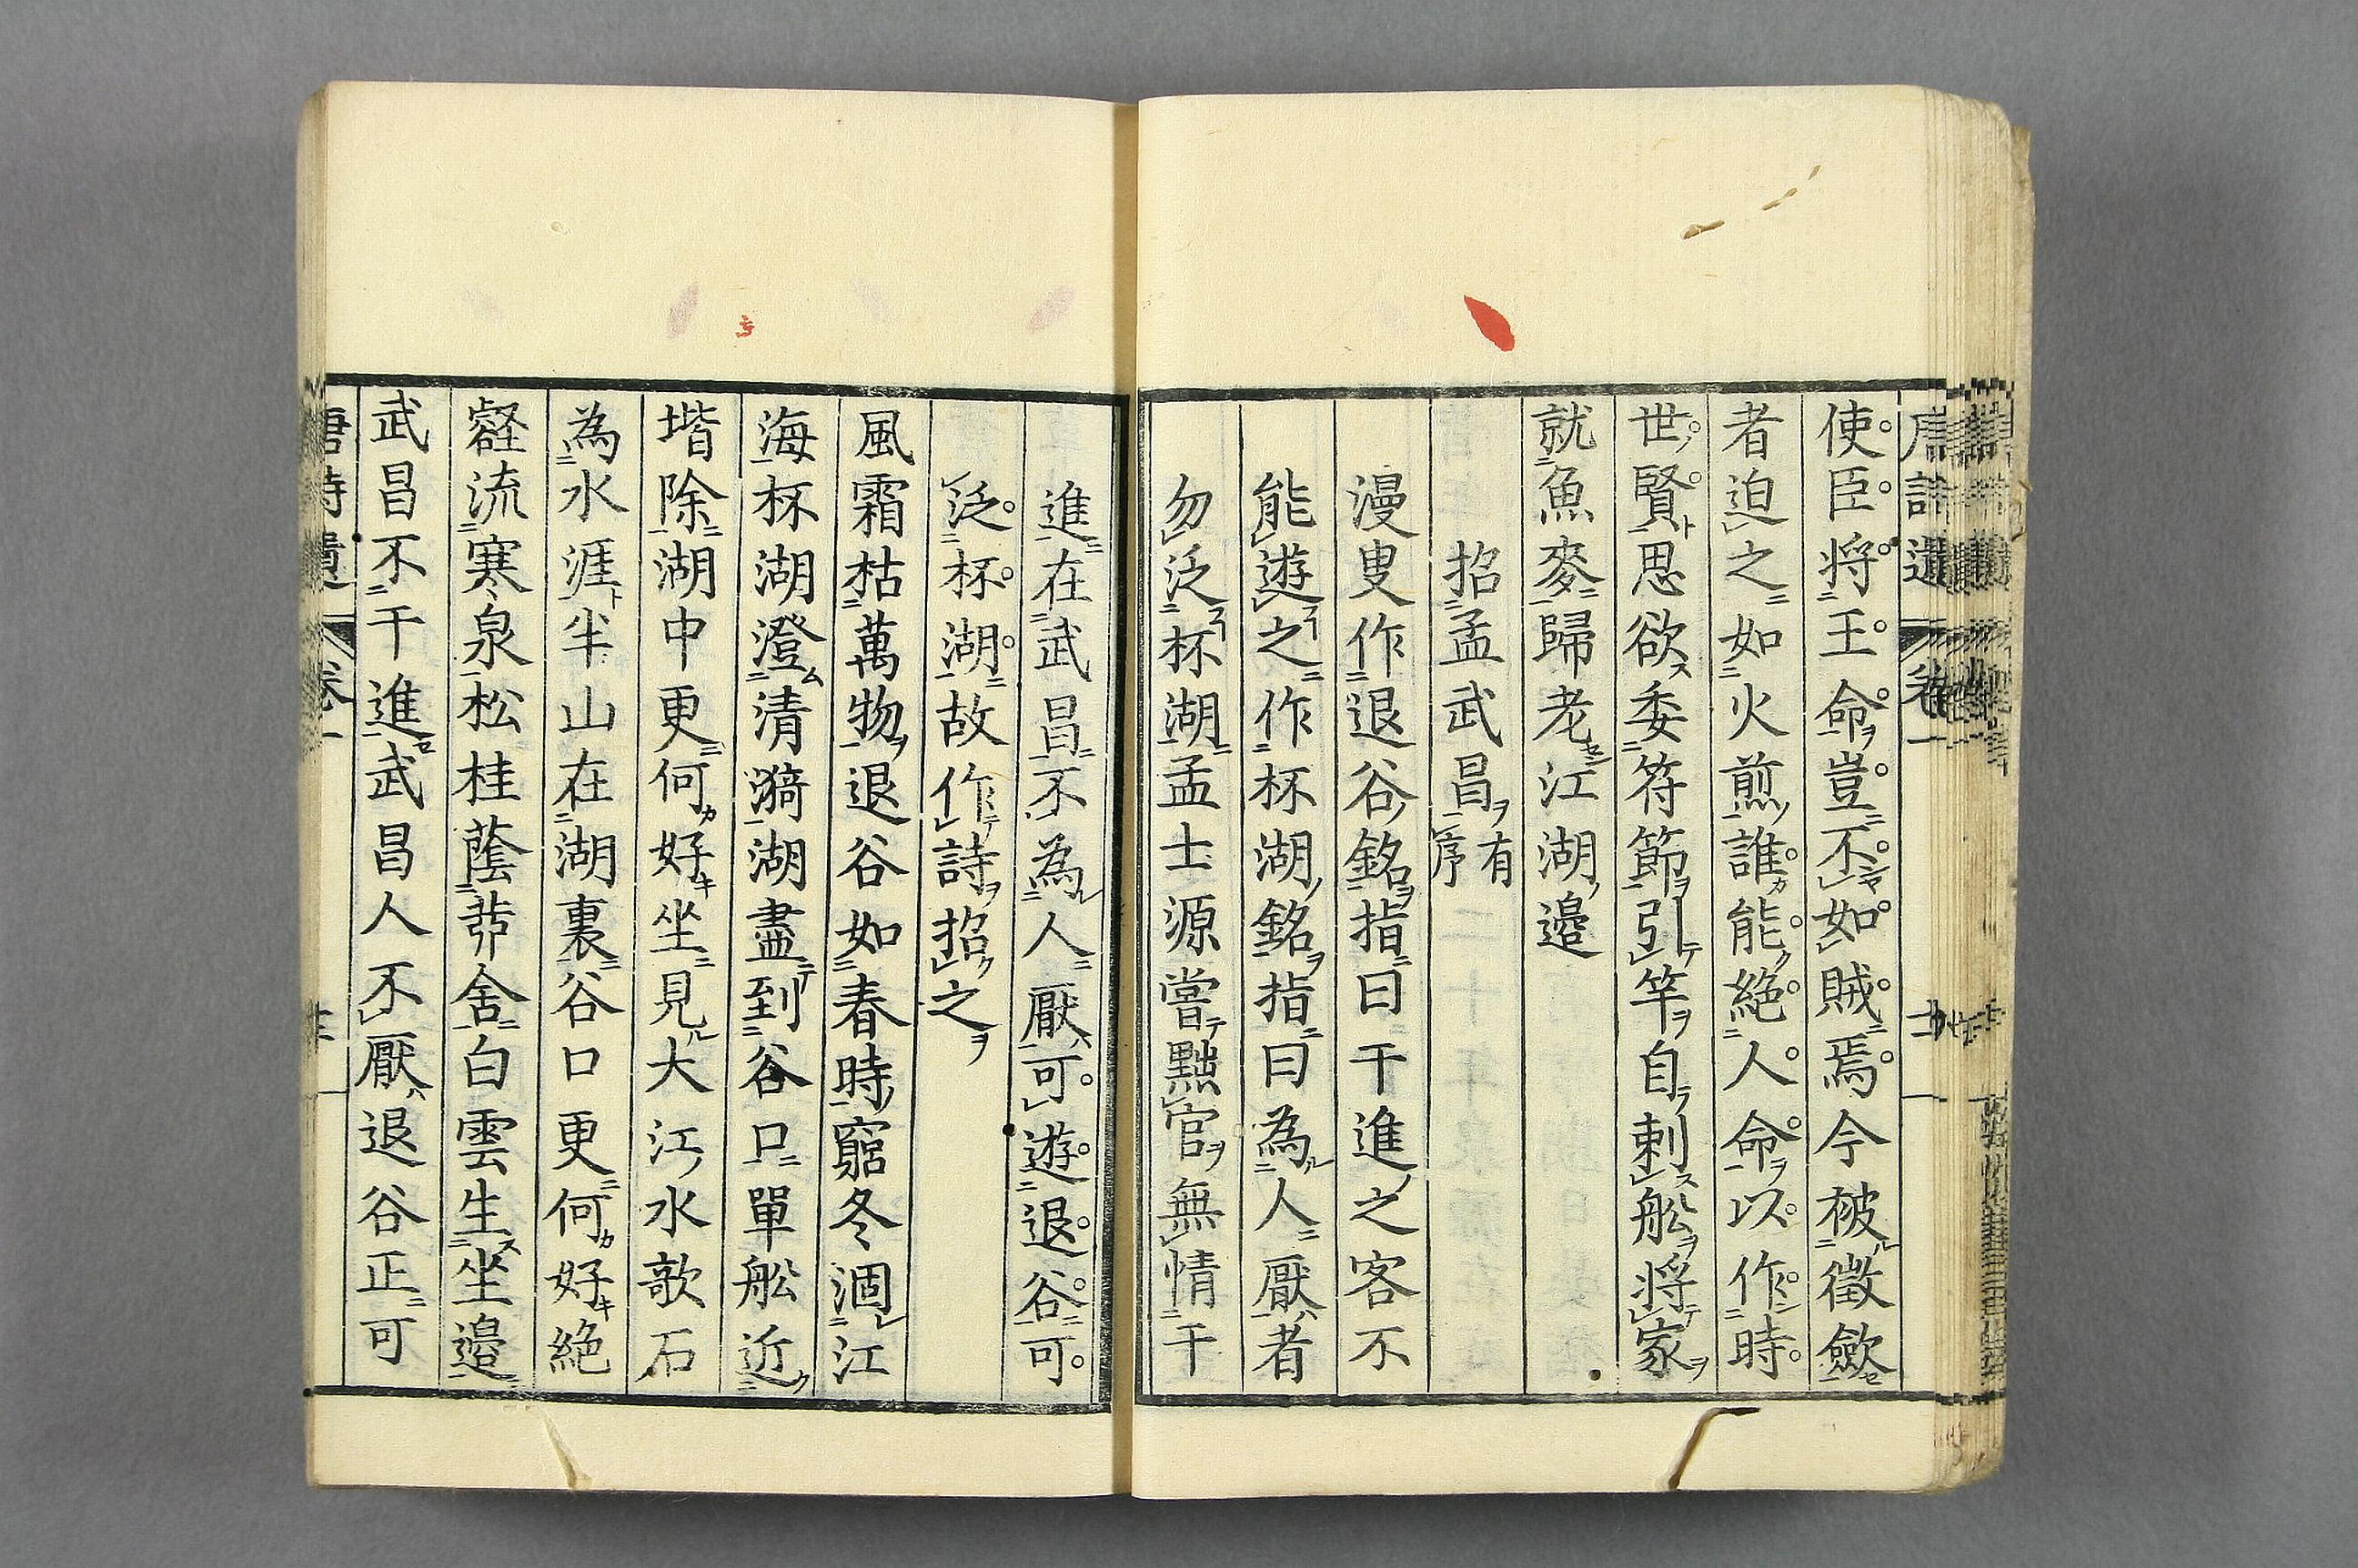 使臣將王命豈不如賊焉今被徵斂
者迫之如火煎誰能絕人命以作時
世賢思欲委符節引竿自刺船將家
就魚麥歸老江湖邉
招孟武昌有序
漫叟作退谷銘指曰干進之客不
能遊之作杯湖銘指曰為人厭者
勿泛杯湖孟士源嘗黜官無情干
進在武昌不為人厭可遊退谷可
泛杯湖故作詩招之
風霜枯萬物退谷如春時窮冬涸江
海杯湖澄清漪湖盡到谷口單舩近
堦除湖中更何好坐見大江水欹石
為水涯半山在湖裏谷口更何好絕
壑流寒泉松桂蔭茆舍白雲生坐邉
武昌不干進武昌人不厭退谷正可
唐詩選 卷一